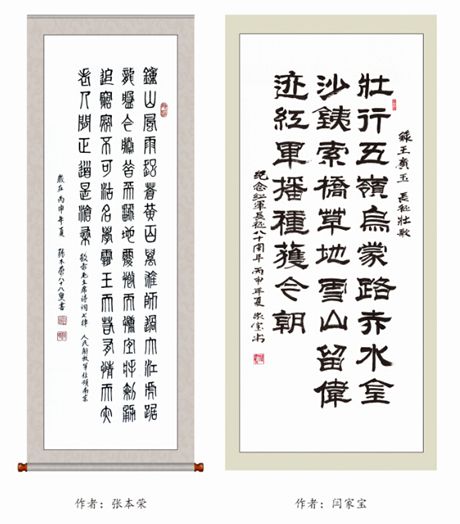 鍾山風雨起蒼黃百萬雄師過大江虎踞
龍盤今勝昔天翻地覆慨而慷宜將剩勇
追窮寇不可沽名學霸王天若有情天亦
老人間正道是滄桑
敬書毛主席诗詞七律 人民解放軍佔領南京
歲在丙申年夏 張本榮八十八叟書
作者：张本荣
錄王貴玉 長征壯歌
壮行五嶺烏蒙路赤水金
沙鐵索橋草地雪山留偉
迹紅軍播種獲今朝
紀念紅軍長征八十周年 丙申年夏 家宝书
作者：闫家宝